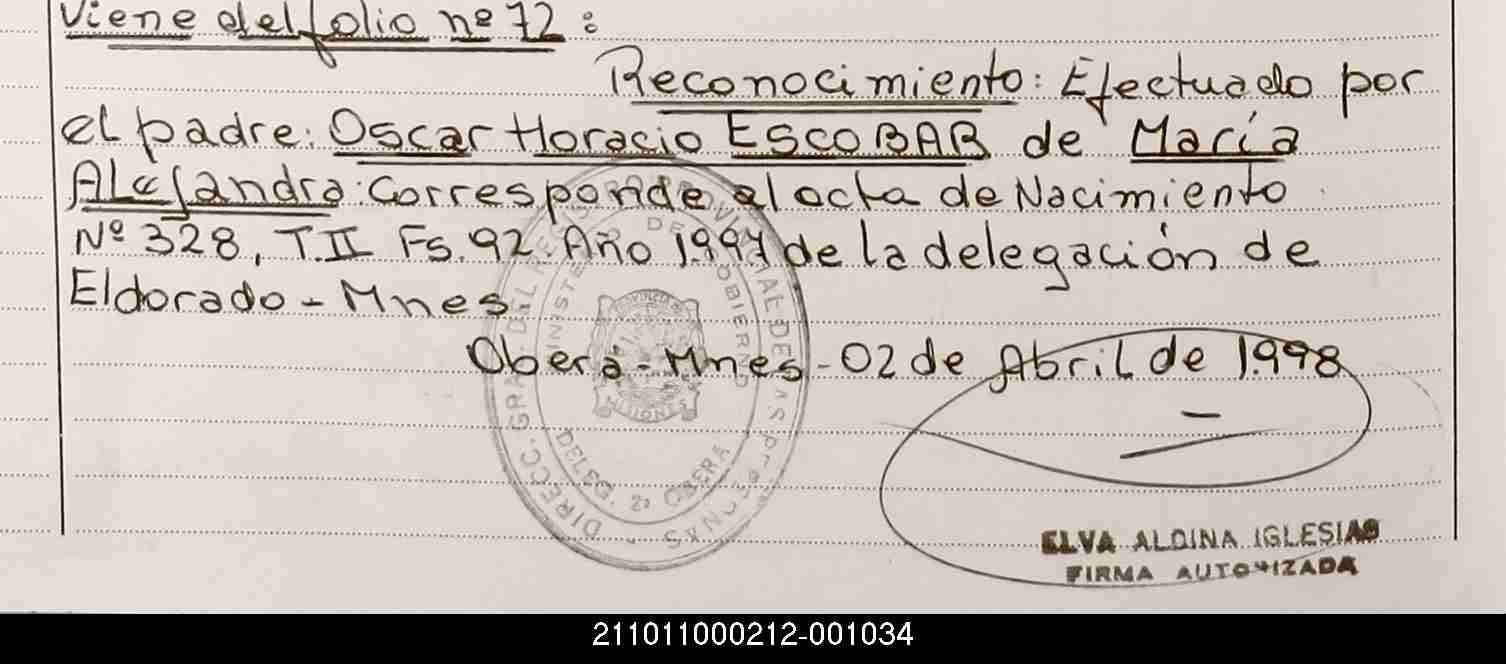 Viene del folio nº 72:
Reconocimiento: Efectuado por
el padre: Oscar Horacio ESCOBAR de María
Alejandra: Corresponde al acta de Nacimiento
Nº 328, T.II Fs. 92. Año 1.997 de la delegación de
Eldorado - Mnes
Oberá - Mnes - 02 de Abril de 1.998
DIRECC. GRAL. DEL REGISTRO PROVINCIAL DE LAS PERSONAS
MINISTERIO DE GOBIERNO
PROVINCIA DE
MISIONES
DELEG. 2ª OBERA
ELVA ALDINA IGLESIAS
FIRMA AUTORIZADA
211011000212-001034